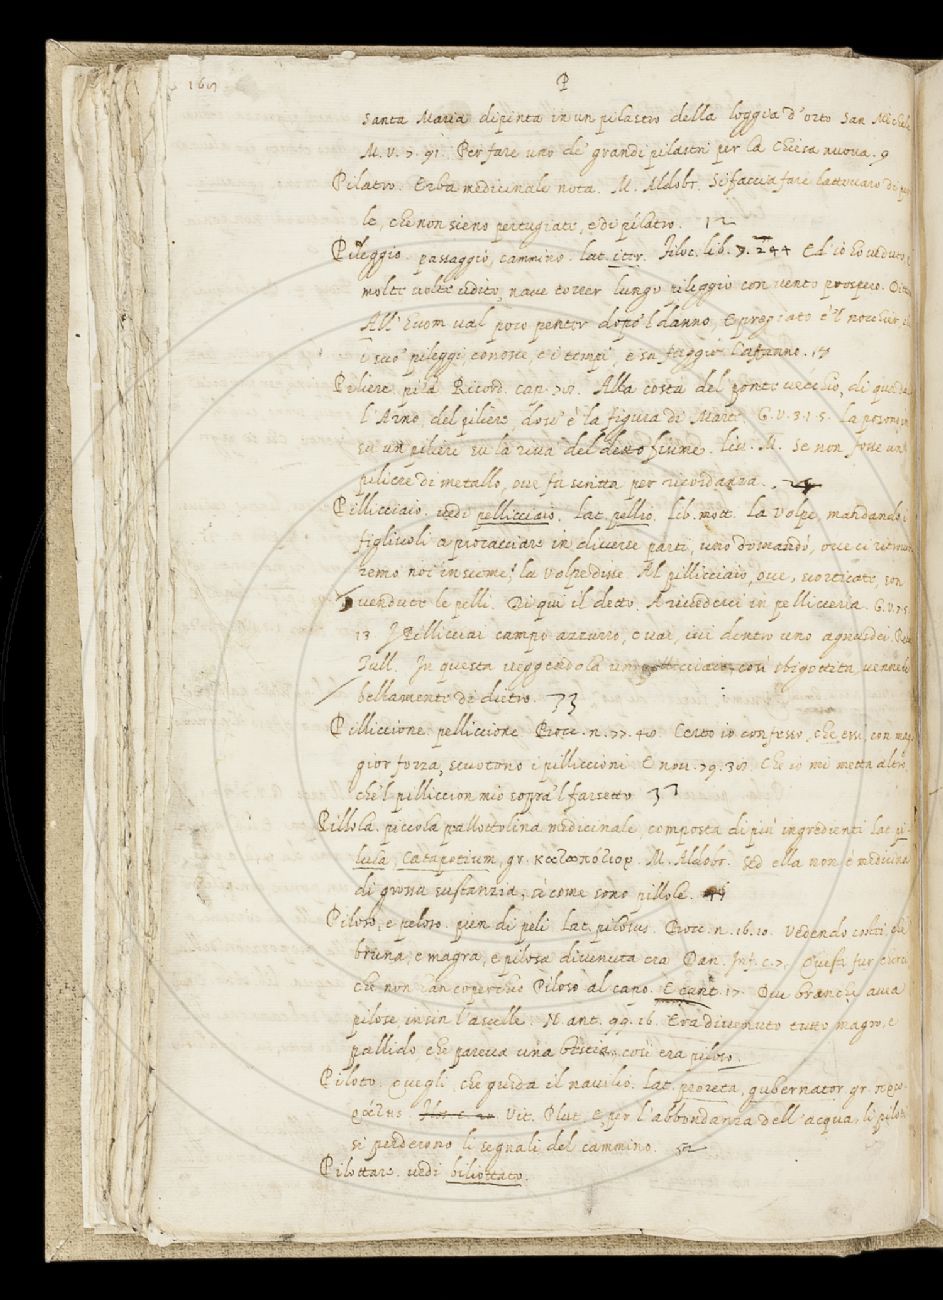 P
Santa Maria dipinta in un pilastro della loggia d'orto San Michele
M. V. 7. 91. Per fare uno de' grandi pilastri per la Chiesa nuova. 9
Pilatro. Erba medicinale nota. M. Aldobr. Si faccia fare lattovaro di
le, che non sieno pertugiate, e di pilatro. 12
Pileggio. passaggio, cammino. lat. iter. Filoc. lib. 7. 244 Ed io ho veduto
molte volte udito, nave correr lungo pileggio con vento prospero.
All'huom val poco pentér dopo 'l danno, E pregiato è 'l nocchier
i suo' pileggi conosce, e i tempi e sa fuggir l'affanno. 17
Piliere. pila Ricord. cap. Alla coscia del ponte vecchio, di qua da
l'Arno, del piliere, dov' è la figura di Marte G. V. 3. 1. 5. la posono in
su un piliere su la riva del detto fiume. Liv. M. Se non fosse un
piliere di metallo, ove fu scritta per ricordanza. 24
Pillicciaio. vedi pellicciaio. Lat. pellio. Lib. mott. La volpe, mandando i
figliuoli a procacciare in diverse parti, uno domandò, ove ci ritrover-
remo noi insieme? la volpe disse. Al pillicciaio, ove, scorticate, son
vendute le pelli. Di qui il detto. A rivederci in pellicceria. G. V. 7.
13 Pillicciai campo azzurro, e vai, ivi dentro uno agnusdei.
Tull. In questa veggendola un pillicciaio, così sbigottita, venne
bellamente di dietro. 33
Pilliccione. pelliccione Bocc. n. 77. 40. Certo io confesso, che essi, con mag-
gior forza, scuotono i pilliccioni E nov. 79. 30. Che io mi metta altro
che 'l pilliccion mio sopra 'l farsetto 37
Pillola. piccola pallottolina medicinale, composta di più ingredienti lat. pi-
lula, Catapotium, gr. καταπότιον. M. Aldobr. Sed ella non è medicina
di grossa sustanzia, sì come sono pillole. 41
Piloso, e peloso. pien di peli lat. pilosus. Bocc. n. 16. 10. Vedendo costei che
bruna, e magra, e pilosa divenuta era Dan. Inf. c. 7. Questi fur cherci
che non han coperchio Piloso al capo. E cant. 17. Due branche avea
pilose insin l'ascelle. N. ant. 99. 16. Era divenuto tutto magro, e
pallido, che pareva una bestia, così era piloso.
Piloto. Quegli, che guida il navilio. Lat. proreta, gubernator gr. πρω-
ράτης. Vit. Plut. E per l'abbondanza dell'acqua, li piloti
si perderono li segnali del cammino. 52
Pilottare. vedi bilottato.